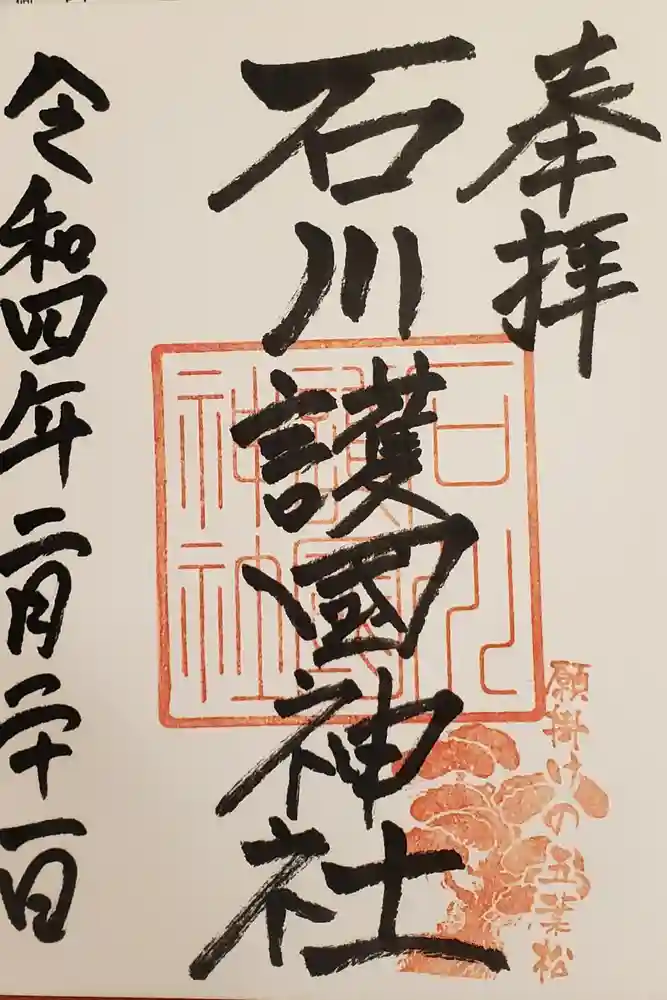 奉拝
石川護國神社
石川護國神社
願掛けの五葉松
令和四年二月二十一日